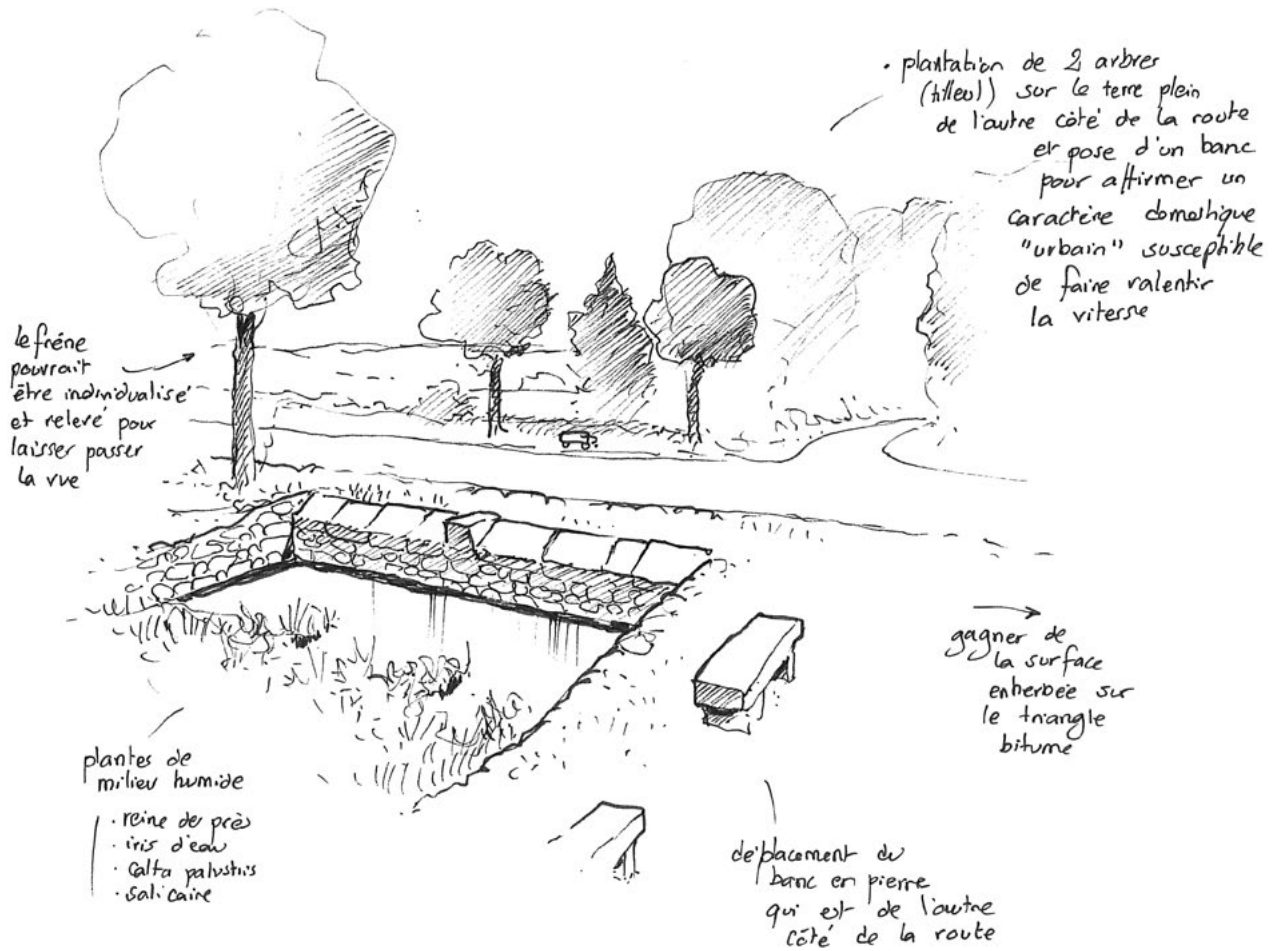 • plantation de 2 arbres
(tilleul) sur le terre plein
de l'autre côté de la route
et pose d'un banc
pour affirmer un
caractère domestique
"urbain" susceptible
de faire ralentir
la vitesse
le frêne
pourrait
être individualisé
et relevé pour
laisser passer
la vue
gagner de
la surface
enherbée sur
le triangle
bitume
plantes de
milieu humide
• reine de près
• iris d'eau
• Calta palustris
• salicaire
déplacement du
banc en pierre
qui est de l'autre
côté de la route